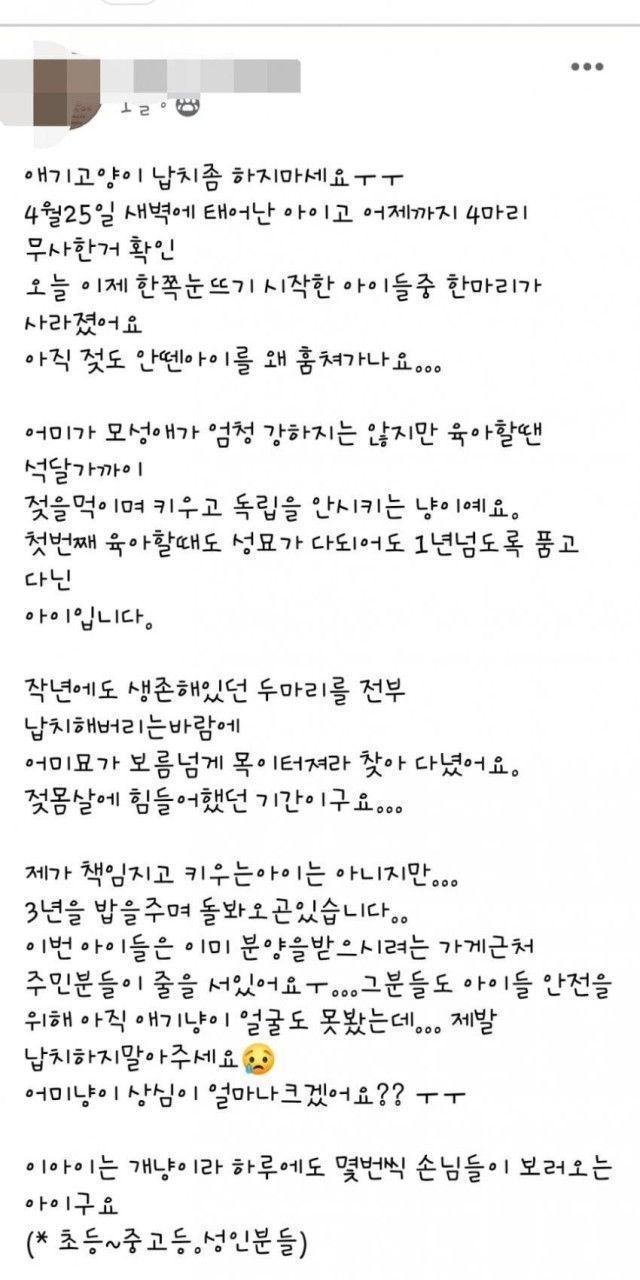 애기고양이 납치좀 하지마세요ㅜㅜ
4월25일 새벽에 태어난 아이고 어제까지 4마리
무사한거 확인
오늘 이제 한쪽눈뜨기 시작한 아이들중 한마리가
사라졌어요
아직 젖도 안뗀아이를 왜 훔쳐가나요...

어미가 모성애가 엄청 강하지는 않지만 육아할땐
석달가까이
젖을먹이며 키우고 독립을 안시키는 냥이예요.
첫번째 육아할때도 성묘가 다되어도 1년넘도록 품고
다닌
아이입니다.

작년에도 생존해있던 두마리를 전부
납치해버리는바람에
어미묘가 보름넘게 목이터져라 찾아 다녔어요.
젖몸살에 힘들어했던 기간이구요...

제가 책임지고 키우는아이는 아니지만...
3년을 밥을주며 돌봐오곤있습니다..
이번 아이들은 이미 분양을받으시려는 가게근처
주민분들이 줄을 서있어요ㅜ...그분들도 아이들 안전을
위해 아직 얘기냥이 얼굴도 못봤는데... 제발
납치하지말아주세요😢
어미냥이 상심이 얼마나크겠어요?? ㅜㅜ

이아이는 개냥이라 하루에도 몇번씩 손님들이 보러오는
아이구요
(* 초등~중고등,성인분들)